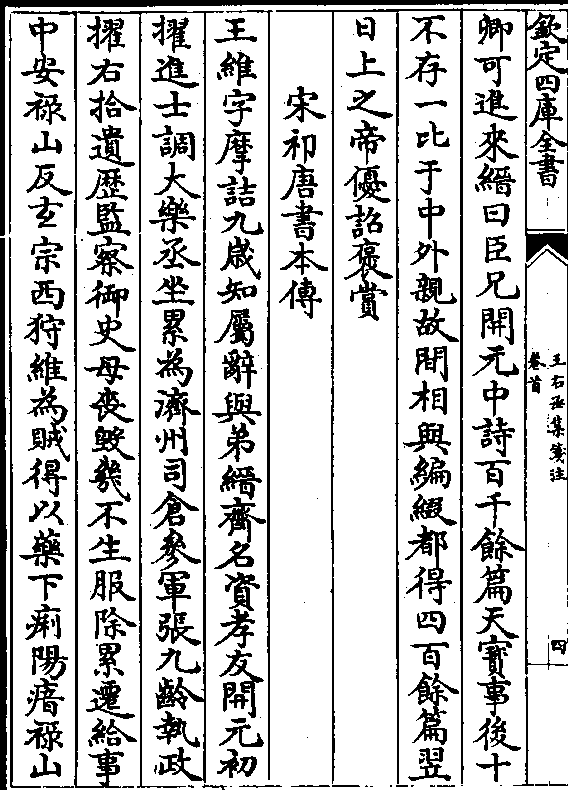 欽定四庫全書
王右丞集箋注
卷首
四
卿可進來縉曰臣兄開元中詩百千餘篇天寳事後十
不存一比于中外親故間相與編綴都得四百餘篇翌
日上之帝優詔褒賞
宋祁唐書本傳
王維字摩詰九歲知屬辭與弟縉齊名資孝友開元初
擢進士調大樂丞坐累為濟州司倉參軍張九齡執政
擢右拾遺歷監察御史母喪毁幾不生服除累遷給事
中安祿山反𤣥宗西狩維為賊得以藥下痢陽瘖祿山